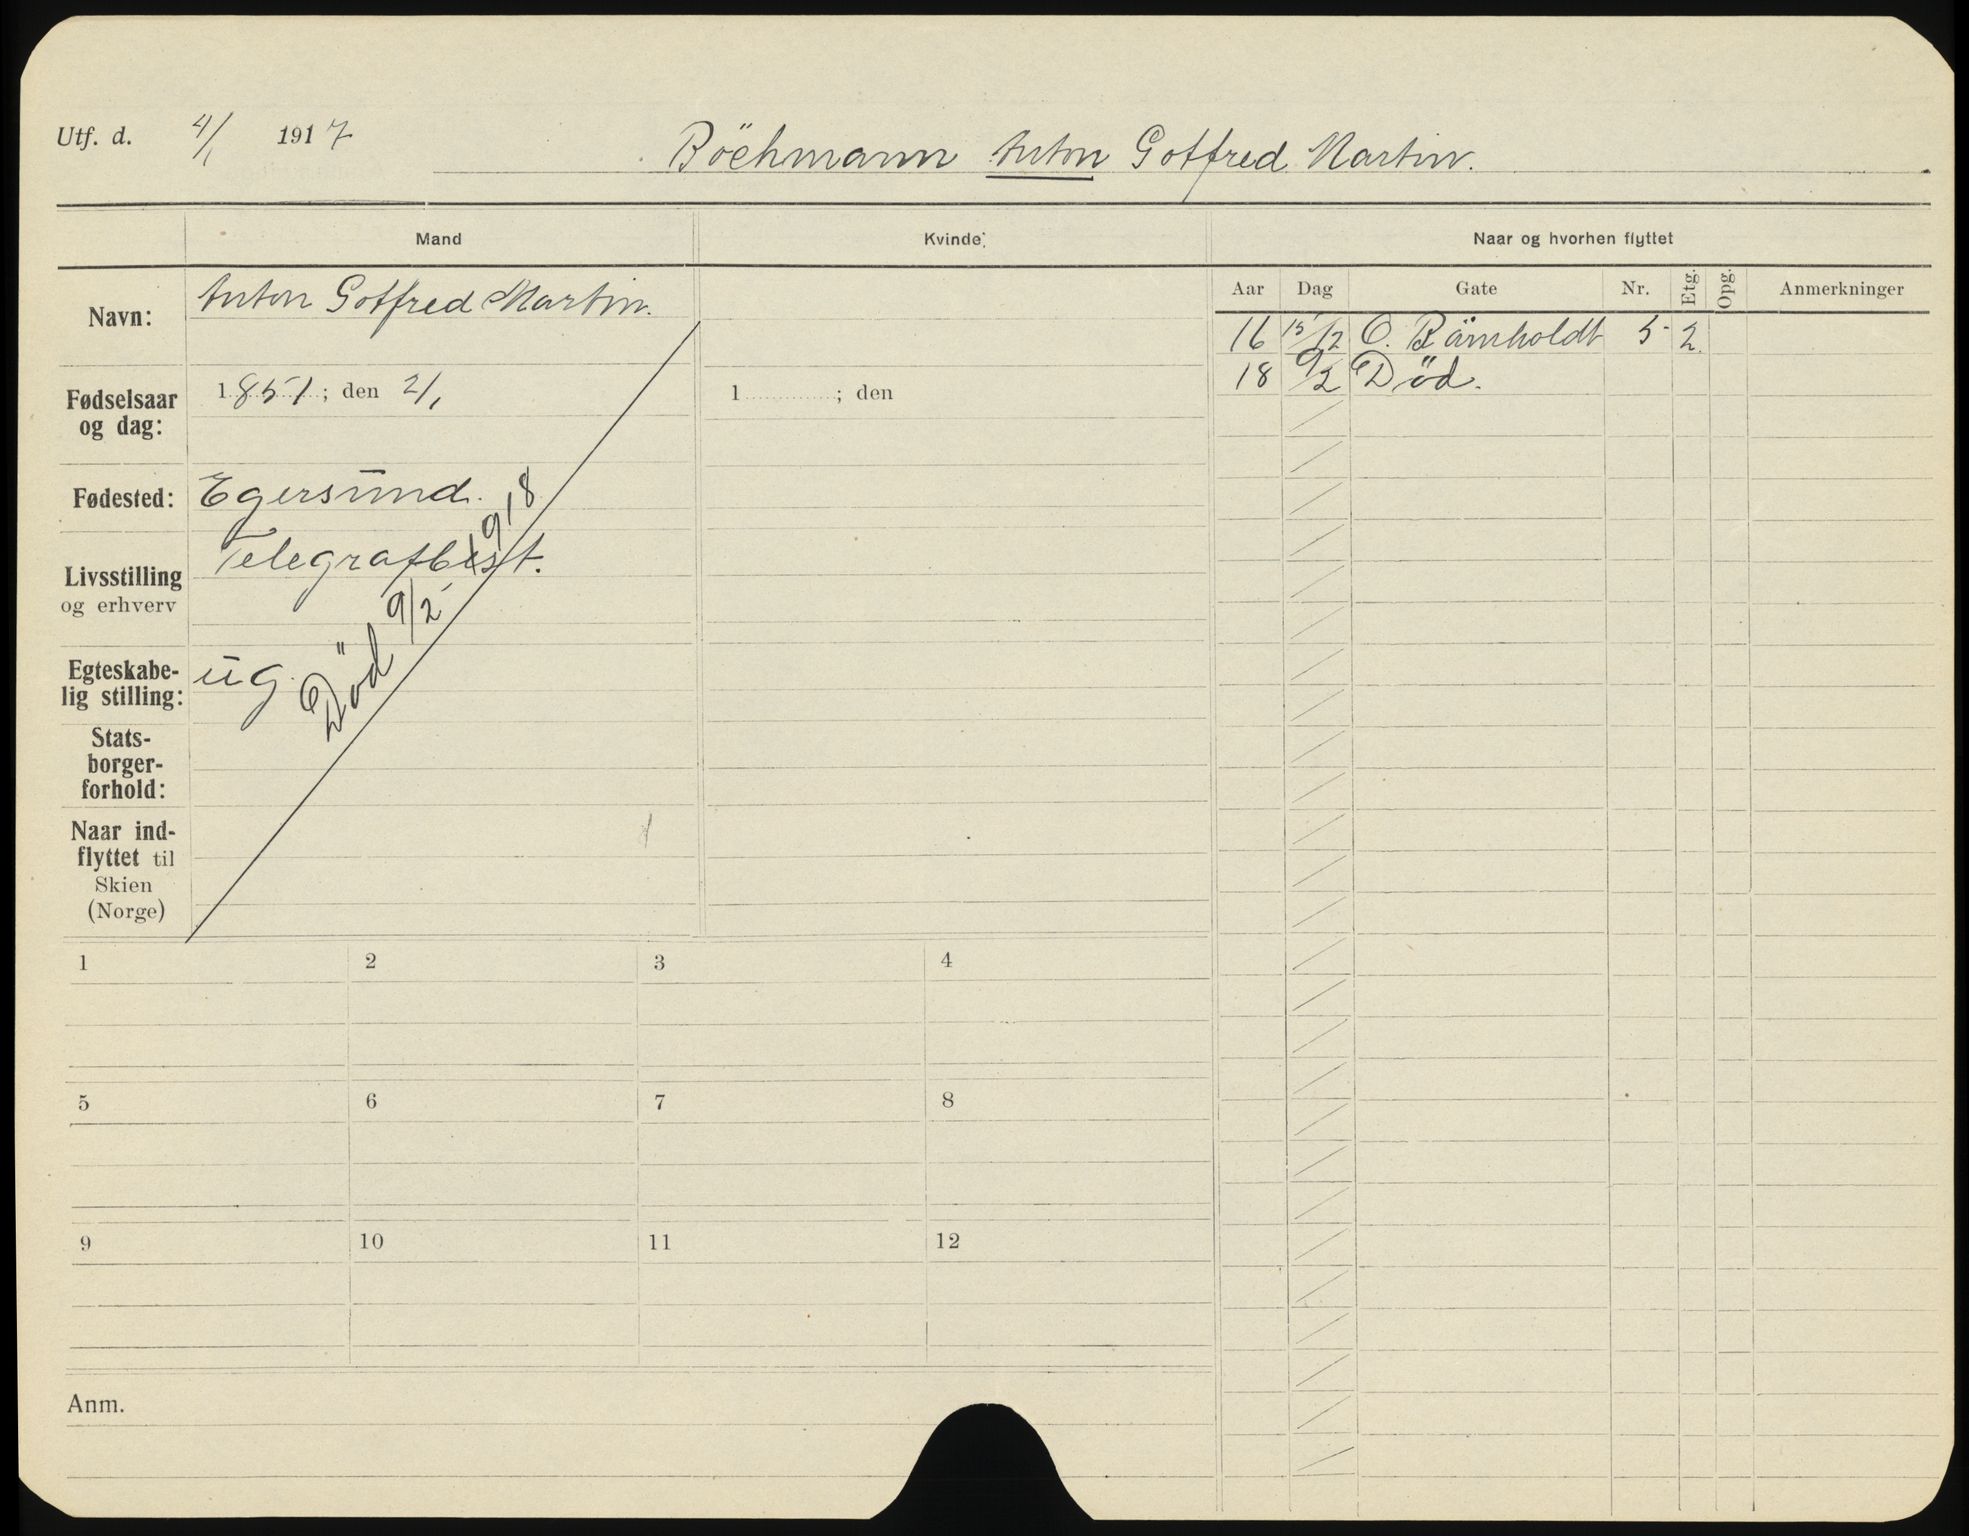 Utf. d. 4/1 1917 Böchmann Anton Gotfred Martin.
Mand Kvinde Naar og hvorhen flyttet
Aar Dag Gate Nr. Etg. Opg. Anmerkninger
Navn: Anton Gotfred Martin.
16 15/12 O. 5 2
18 9/2 Död.
Fødselsaar og dag: 1851; den 2/1 1 ; den
Fødested: Egersund.
Livsstilling og erhverv Telegrafbest.
Egteskabe-
lig stilling: ug.
Död 9/2 1918
Stats-
borger-
forhold:
Naar ind-
flyttet til
Skien
(Norge)
1 2 3 4
5 6 7 8
9 10 11 12
Anm.